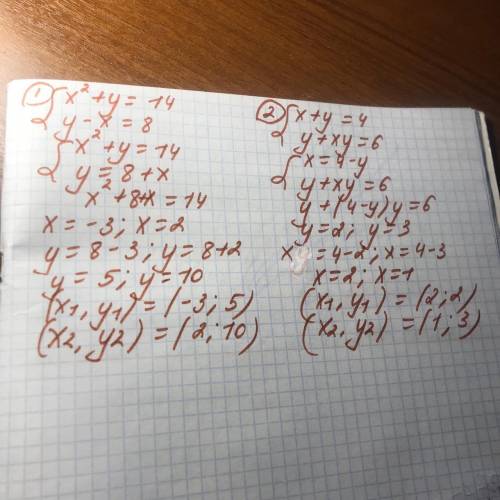 ① { x² + y = 14
y - x = 8
{ x² + y = 14
y = 8 + x
x² + 8 + x = 14
x = -3; x = 2
y = 8 - 3; y = 8 + 2
y = 5; y = 10
(x1, y1) = (-3; 5)
(x2, y2) = (2; 10)
② { x + y = 4
y + xy = 6
{ x = 4 - y
y + xy = 6
y + (4 - y)y = 6
y = 2; y = 3
x = 4 - 2; x = 4 - 3
x = 2; x = 1
(x1, y1) = (2; 2)
(x2, y2) = (1; 3)